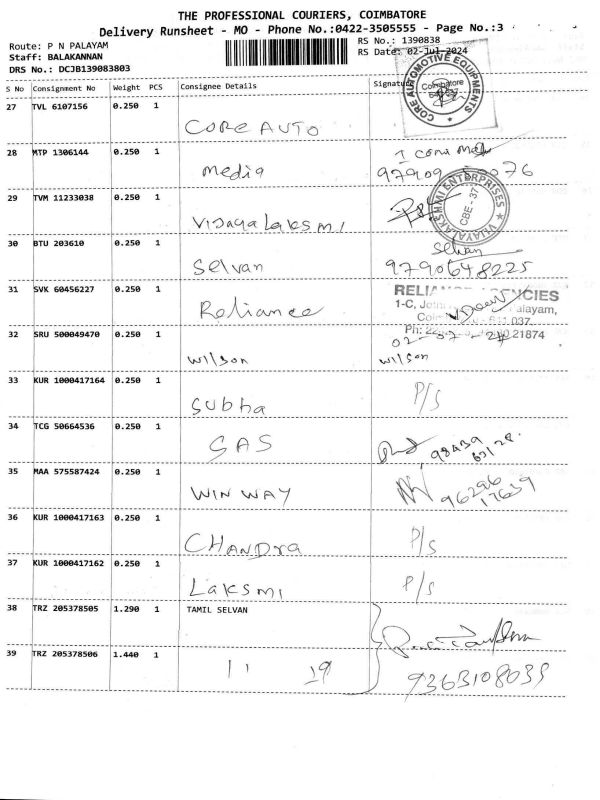 THE PROFESSIONAL COURIERS, COIMBATORE
Delivery Runsheet - MO - Phone No.:0422-3505555 - Page No.:3
Route: P N PALAYAM RS No.: 1390838
Staff: BALAKANNAN RS Date: 02-Jul-2024
DRS No.: DCJB139083803
S No Consignment No Weight PCS Consignee Details Signature
CORE AUTOMOTIVE EQUIPMENTS
Coimbatore
27 TVL 6107156 0.250 1
CORE AUTO
28 MTP 1306144 0.250 1
media
97909 076
29 TVM 11233038 0.250 1
Vijaya Laksmi
VIJAYALAKSHMI ENTERPRISES
CBE - 37
30 BTU 203610 0.250 1 Selvan
Selvan 9790648225
31 SVK 60456227 0.250 1
Reliance
1-C,
Ph: 21874
02-07-24
32 SRU 500049470 0.250 1
Wilson Wilson
33 KUR 1000417164 0.250 1
Subha P/S
34 TCG 50664536 0.250 1
SAS 98439
35 MAA 575587424 0.250 1
WIN WAY 96296
17639
36 KUR 1000417163 0.250 1
CHANDRA P/S
37 KUR 1000417162 0.250 1
Laksmi P/S
38 TRZ 205378505 1.290 1 TAMIL SELVAN
39 TRZ 205378506 1.440 1
9363108039